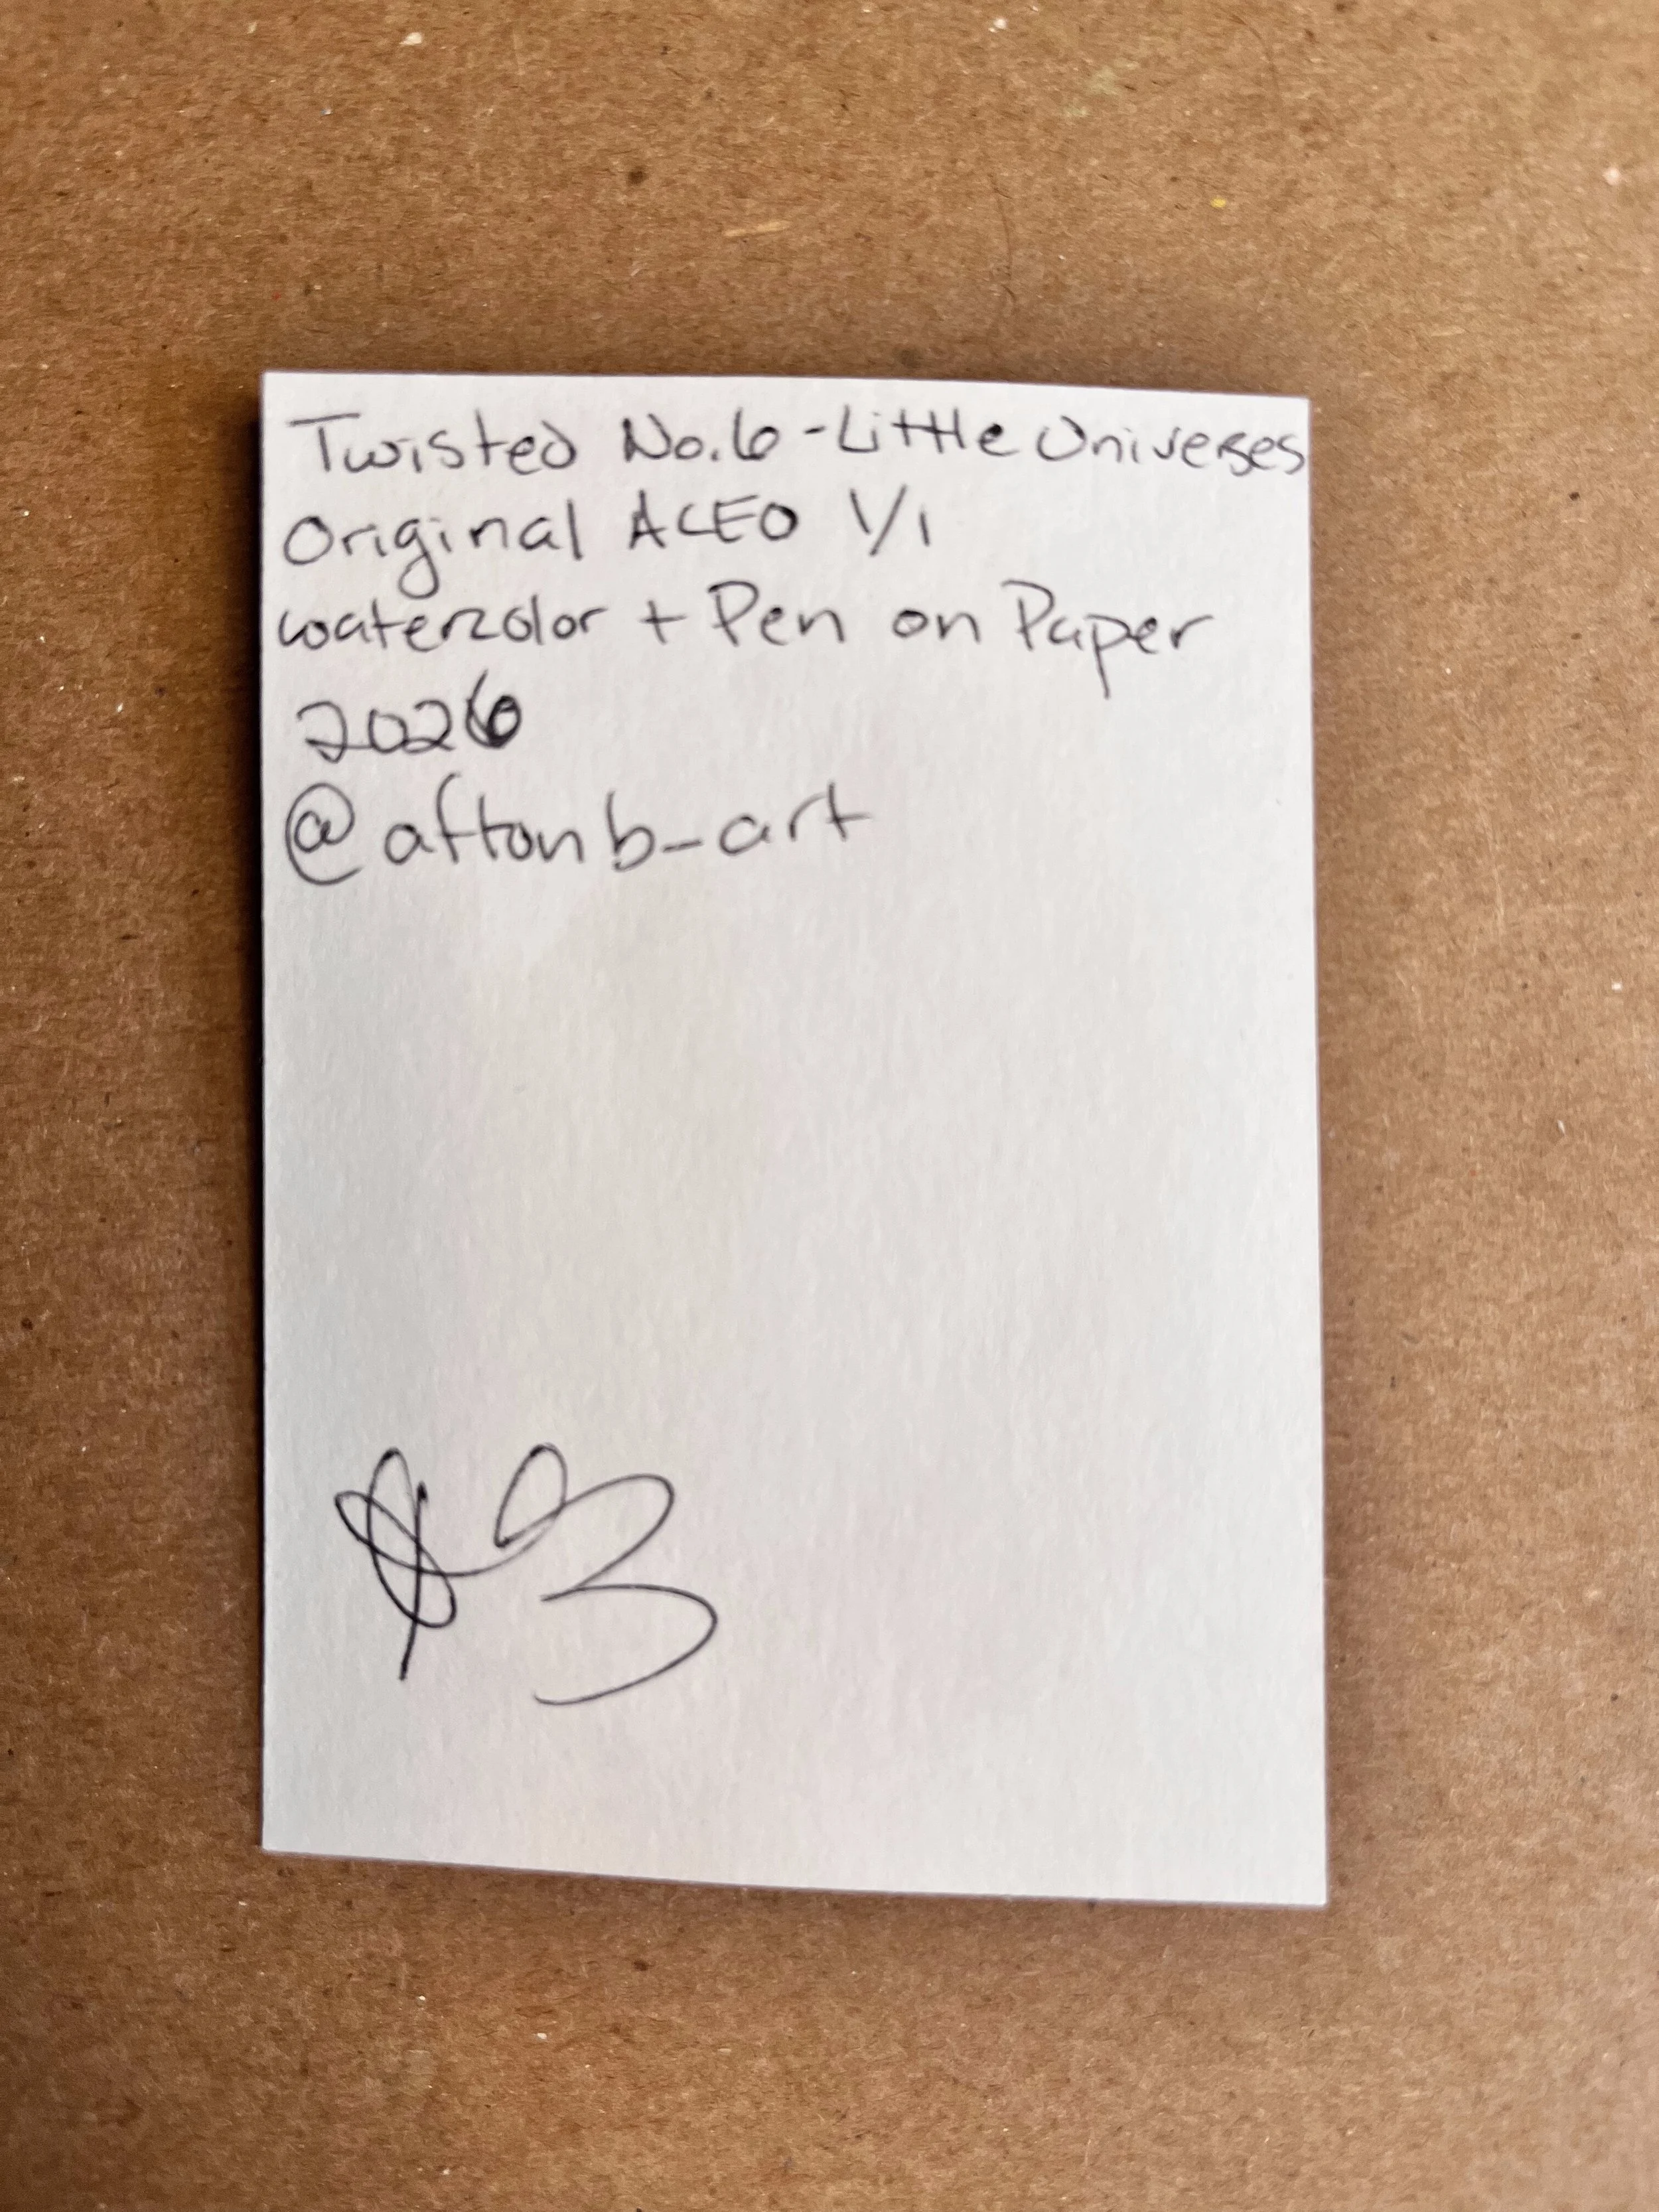 Twisted No.6 - Little Universes
Original ACEO 1/1
watercolor + Pen on Paper
2026
@aftonb_art